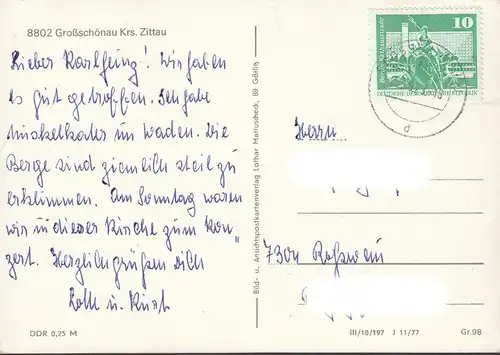 8802 Großschönau Krs. Zittau
Lieber Karlheinz! Wir haben
es gut getroffen. Ich habe
Muskelkater im Waden. Die
Berge sind ziemlich steil zu
erklimmen. Am Sonntag waren
wir in dieser Kirche zum Kon„
zert. Herzlich grüßen dich
u.
DDR 0,25 M
Bild- u. Ansichtspostkartenverlag Lothar Mattuscheck, 89 Görlitz
10
DEUTSCHE DEMOKRATISCHE REPUBLIK
d
Herrn
7304 Roßwein
III/18/197 J 11/77
Gr.98